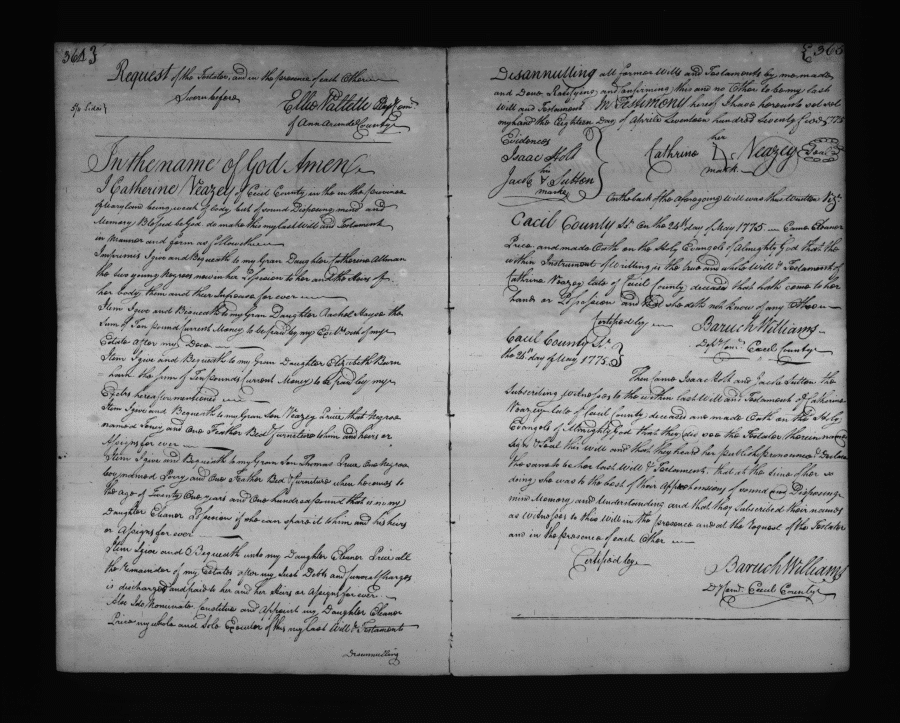 364
Request of the Testator, and in the presence of each other
Sworn before
Elie Vallette Depy Comy
of Ann Arundel County
In the name of God Amen
I Catherine Veazey of Cecil County, in the in the province
of Maryland being weak of body, but of sound Disposing mind and
Memory Blessed be God do make this my last Will and Testament
in Manner and form as followeth
Imprimis I give and Bequeath to my Gran Daughter Catherine Allman
the two young Negroes now in her Possession to her and the Heirs of
her body, them and their Increase for ever
Item I give and Bequeath to my Gran Daughter Rachel the
Sum of Ten pound Current Money to be paid by my out of my
Estate after my Dece
Item I give and Bequeath to my Gran Daughter Elizabeth Burn
ham the sum of Ten pounds Current Money to be paid by my
hereafter mentioned
Item I give and Bequeath to my Gran Son Veazey Price that Negroe
named and One Feather Bed & furniture to him and heirs or
Assigns for ever
Item I give and Bequeath to my Gran Son Thomas Price One Negroe
boy named Perry and One Feather Bed & furniture when he comes to
the age of Twenty One years and One hundred pound that is in my
Daughter Eleaner Possession if she can spare it to him and his heirs
or Assigns for ever
Item I give and Bequeath unto my Daughter Eleaner Price all
the remainder of my Estates after my Just Debts and funeral Charges
is discharged and paid to her and her Heirs or Assigns for ever
Also I do Nominate Constitute and Appoint my Daughter Eleaner
Price my whole and Sole Executor of this my last Will & Testament
Disannulling
365
Disannulling all former Wills and Testaments by me made,
and Done Ratifying and confirming this and no Other to be my last
Will and Testament In Testimony hereof I have hereunto set
my hand the Eighteen Day of Aprile Seventeen hundred Seventy five 1775
Evidences
Isaac Holt
Jacob his Sutton
marke
Cathrine her Veazey Seal
mark
On the back of the aforegoing Will was thus Written Vizt
Cacil County Sst. On the 24th day of May 1775 Came Eleaner
Price, and made Oath on the Holy Evangels of Almighty God that the
within Instrument of Writting is the true and whole Will & Testament of
Cathrine Veazey late of Cecil County, deceased that hath come to her
hand or Possession and that she doth not know of any Other
Certified by
Baruch Williams
Depy Comy Cecil County
Cacil County Sst.
the 24th day of May 1775
Then Came Isaac Holt and Jacob Sutton the
Subscribing witnesses to the within last Will and Testament of Catherine
Veazey late of Cecil County deceased and made Oath on the Holy
Evangels of Almighty God that they did see the Testator therein named
Sign & Seal this Will and that they heard her publish pronounce & Declare
the same to be her last Will & Testament, that at the time of her so
doing she was to the best of their Apprehensions of sound and Disposing
mind Memory and Understanding and that they Subscribed their names
as Witnesses to this Will in the presence and at the request of the Testator
and in the presence of each Other
Certified by
Baruch Williams
Dy Comy Cecil County